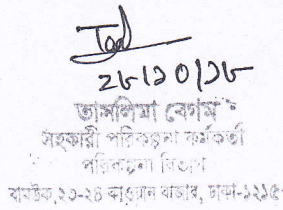 ২৮/১০/১৮
তাসলিমা বেগম
সহকারী পরিকল্পনা কর্মকর্তা
পরিকল্পনা বিভাগ
বাসউক, ২০-২৪ কাওরান বাজার, ঢাকা-১২১৫